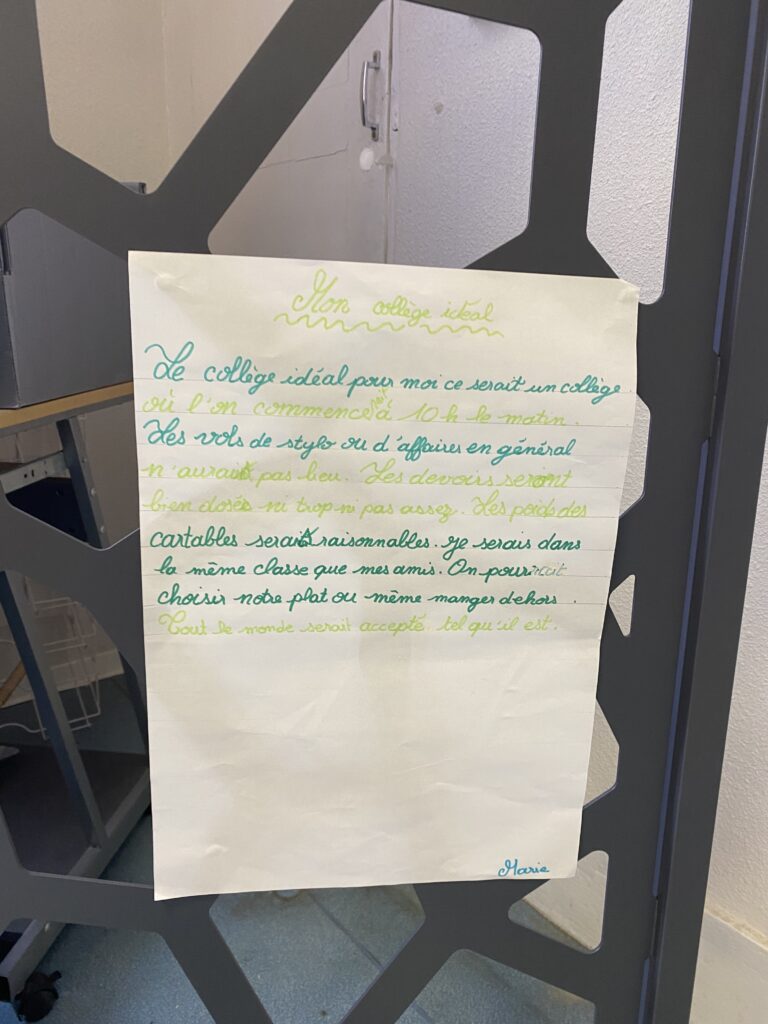 Mon collège idéal
Le collège idéal pour moi ce serait un collège
où l'on commencerait à 10 h le matin.
Les vols de stylo ou d'affaires en général
n'auraient pas lieu. Les devoirs seront
bien dosés ni trop ni pas assez. Les poids des
cartables seraient raisonnables. Je serais dans
la même classe que mes amis. On pourrait
choisir notre plat ou même manger dehors.
Tout le monde serait accepté tel qu'il est.
Marie